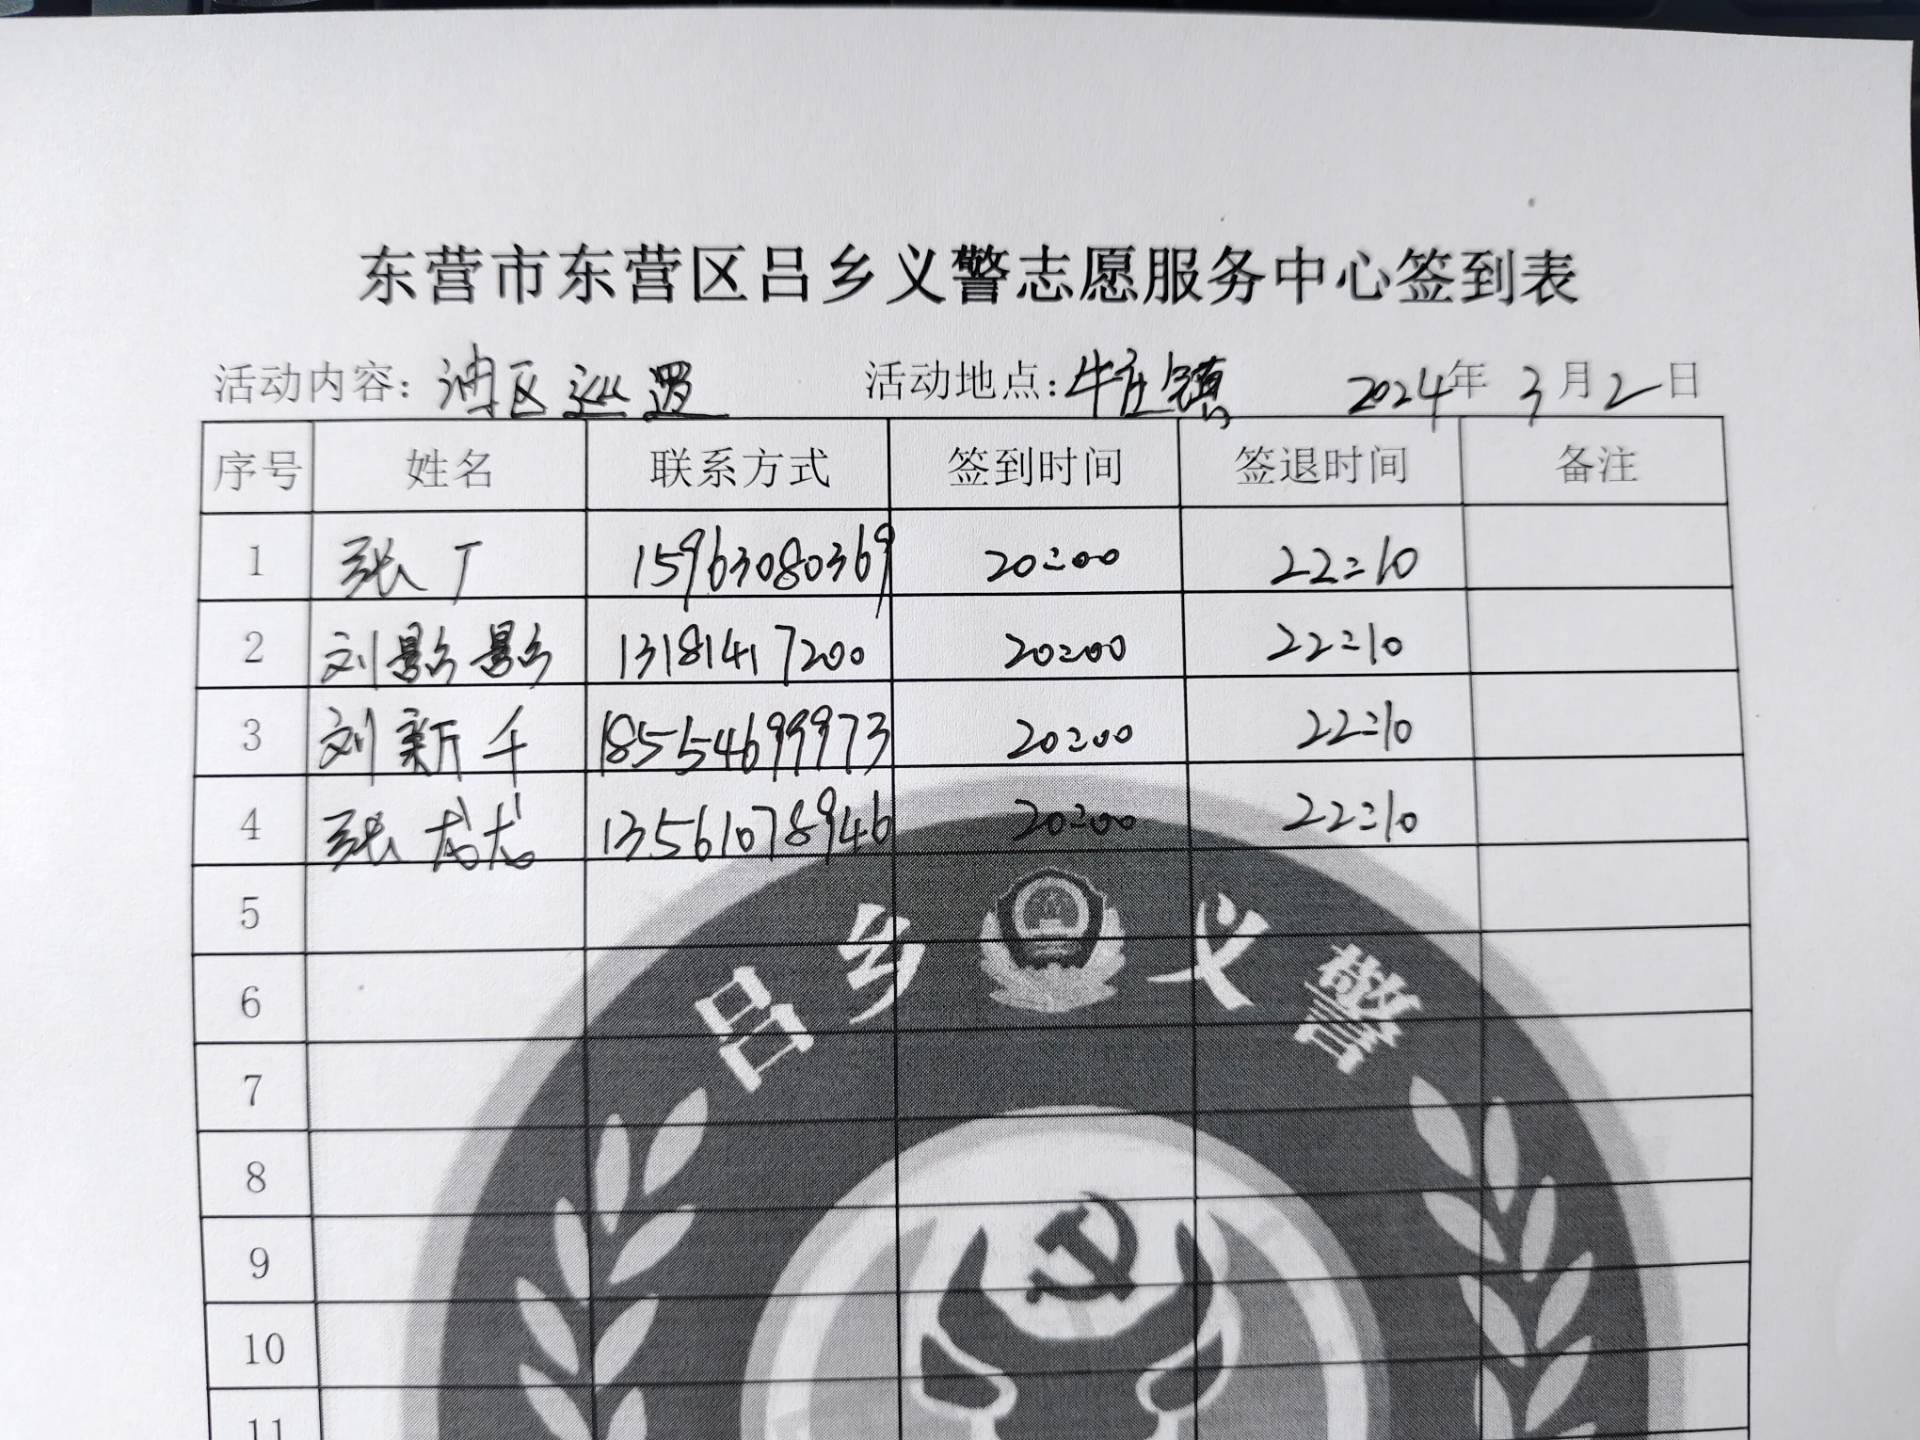 东营市东营区吕乡义警志愿服务中心签到表
活动内容：油区巡逻 活动地点：牛庄镇 2024年3月2日
序号 姓名 联系方式 签到时间 签退时间 备注
1 张广 15963080369 20:00 22:10
2 刘影影 13181417200 20:00 22:10
3 刘新千 18554699973 20:00 22:10
4 张龙龙 13561078946 20:00 22:10
5
吕乡义警
6
7
8
9
10
11